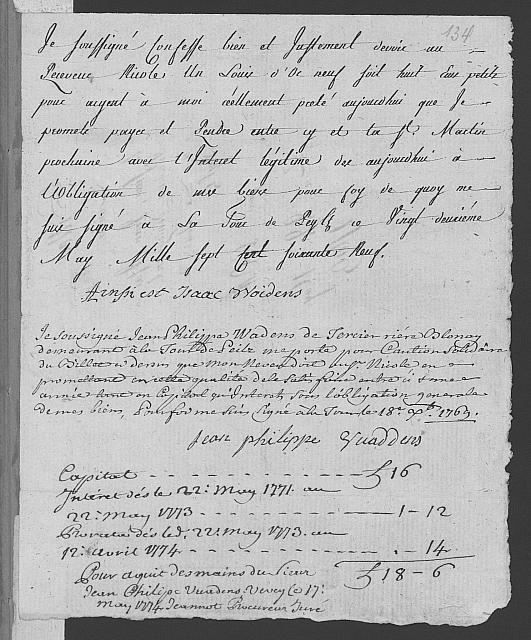 134
Je soussigné Confesse bien et Justement devoir au
Receveur Nicole Un Louis d'Or neuf soit huit Ecus petits
pour argent à moi réellement preté aujourdhui que Je
promets payer et Rendre entre cy et la St. Martin
prochaine avec l'Interet légitime des aujourdhui à
L'obligation de mes biens pour foy de quoy me
suis signé à La Tour de Peylz ce Vingt deuxiéme
May Mille Sept Cent soixante Neuf.
Ainsi est Isaac Woidens
Je soussigné Jean Philippe Wadens de Tercier riére Blonay
demeurant à la Tour de Peilz me porte pour Caution Solidaire
du Billet ci dessus que mon Reven doit au Sr. Nicole en
promettant en cette qualité de le Satisfaire entre ci & une
année tant en Capital qu'Interets sous l'obligation generale
de mes biens, Pour foi me suis signé à la Tour le 18e. 1769.
Jean philippe Vuaddens
Capital - - - - - - - - - - - - £ 16
Interet dés le 22e. May 1771. au
22e. May 1773 - - - - - - - - - 1 - 12
Prorata dés led. 22e. May 1773. au
12e. avril 1774 - - - - - - - - . - 14
£ 18 - 6
Pour aquit des mains du Sieur
Jean Philipe Vuadens Vevey le 17e.
may 1774 Jeannot Procureur Juré